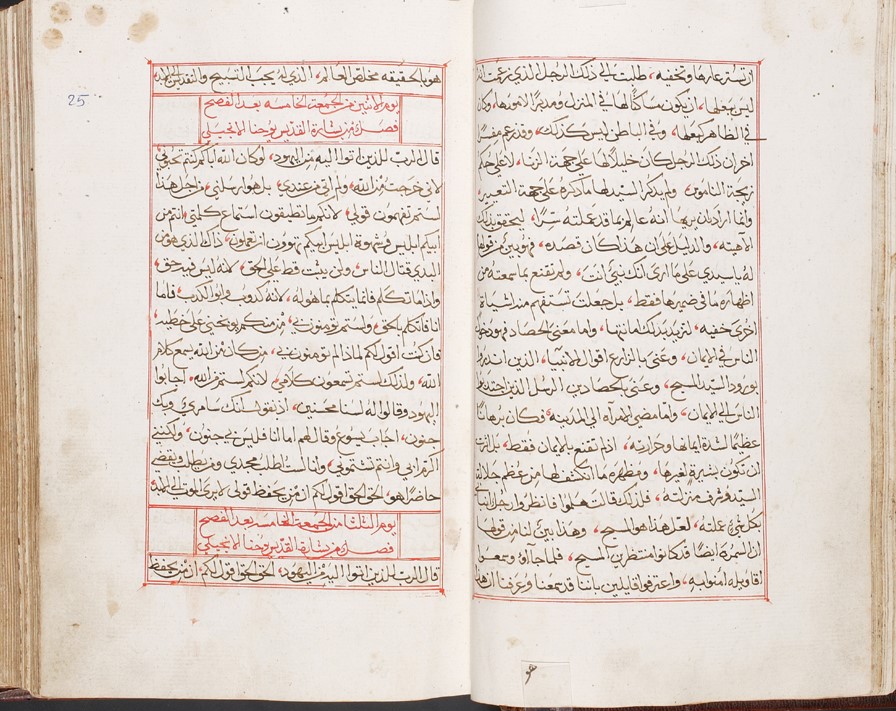 ان تستر عارها وتخفيه، طلبت الى ذلك الرجل الذي زعمت انه
ليس بعلها، ان يكون مساكنًا لها في المنزل ومدبرًا لامورها، وكان
في الظاهر كبعلها، وفي الباطن ليس كذلك، وقد زعم مفسرًا
اخر ان ذلك الرجل كان خليلًا لها على جهة الزنا، لا على حكم
زيجة الناموس، ولم يذكر السيد لها ما ذكره على جهة التعيير،
وانما اراد ان يريها انه عالم بما قد عملته سرًا، ليحقق بذلك
الاهيته، والدليل على ان هذا كان قصده، فهو بين من قولها
له يا سيدي على ما ارى انك نبي انت، ولم تقنع بما سمعته من
اظهاره ما في ضميرها فقط، بل جعلت تستفهم منه اشياء
اخرى خفيه، لتزيد بذلك امانتها، واما معنى الحصاد فهو دخول
الناس في الايمان، وعنى بالزارع اقوال الانبيا، الذين انذروا
بورود السيد المسيح، وعنى بالحصادين الرسل الذين اجتذبوا
الناس الى الايمان، واما مضي المراه الى المدينه، فكان برهانًا
عظيمًا لشدة ايمانها وحرارته، اذ لم تقنع بالايمان فقط، بل اثرت
ان تكون بشيرة لغيرها، ومظهره ما انكشف لها من عظم جلالة
السيد وشرف منزلته، فلذلك قالت هلموا فانظروا رجل انباني
بكل شيء عملته، لعل هذا هو المسيح، وهذا بين لنا من قولها
ان السمره ايضًا قد كانوا منتظرين المسيح، فلما جاؤه وسمعوا
اقاويله امنوا به، واعترفوا قايلين باننا قد سمعنا وعرفنا ان هذا
هو
25
هو بالحقيقه مخلص العالم، الذي له يجب التسبيح والتقديس الى الابد
يوم الاثنين من الجمعة الخامسه بعد الفصح
فصل من بشارة القديس يوحنا الانجيلي
قال الرب للذين اتوا اليه من اليهود، لو كان الله اباكم كنتم تحبوني
لاني خرجت من الله، ولم اتي من عندي، بل هو ارسلني، من اجل هذا
لستم تفهمون قولي، لانكم ما تطيقون استماع كلمتي، انتم من
ابيكم ابليس وشهوة ابليس ابيكم تهوون ان تعملون، ذاك الذي هو من
البدي قتال الناس، ولن يثبت قط على الحق، لانه ليس فيه حق،
واذا ما تكلم فانما يتكلم بما هو له، لانه كدوب وابو الكدب، فاما
انا فاتكلم بالحق، ولستم تومنون بي، من منكم يوبخني على خطيه،
فان كنت اقول لكم لماذا لم تومنون بي، من كان من الله يسمع كلام
الله، ولذلك لستم تسمعون كلامي، لانكم لستم من الله، اجابوا
اليهود وقالوا له السنا محسنين، اذ نقول انك سامري وبك
جنون، اجاب يسوع وقال لهم اما انا فليس بي جنون، ولكنني
اكرم ابي وانتم تشتموني، وانا لست اطلب مجدي ومن يطلب ويقضي
حاضرًا هو، الحق الحق اقول لكم ان من يحفظ قولي لا يرى الموت الى الابد
يوم الثلثا من الجمعة الخامسه بعد الفصح
فصل من بشارة القديس يوحنا الانجيلي
قال الرب للذين اتوا اليه من اليهود، الحق الحق اقول لكم، ان من يحفظ